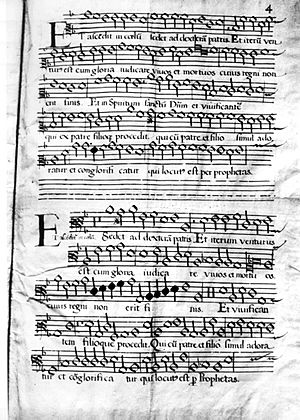 4
Et ascēdit in celū sedet ad dexterā patris. Et iterū ven
turus est cum gloria iudicare vivos et mortuos cuius regni non
erit finis. Et in Spiritum sanctū Dñm et vivificantē
qui ex patre filioq procedit. qui cū patre et filio simul ado
ratur et conglorifi catur qui locut' est per prophetas.
Et Sedet ad dexterā patris. Et iterum venturus
est cum gloria iudica re vivos et mortu os
cuius regni non erit fi nis. Et vivifican
tem filioque procedit. Qui cū patre et filio simul adora
tur et cōglorifica tur qui locut' est p Prophetas.